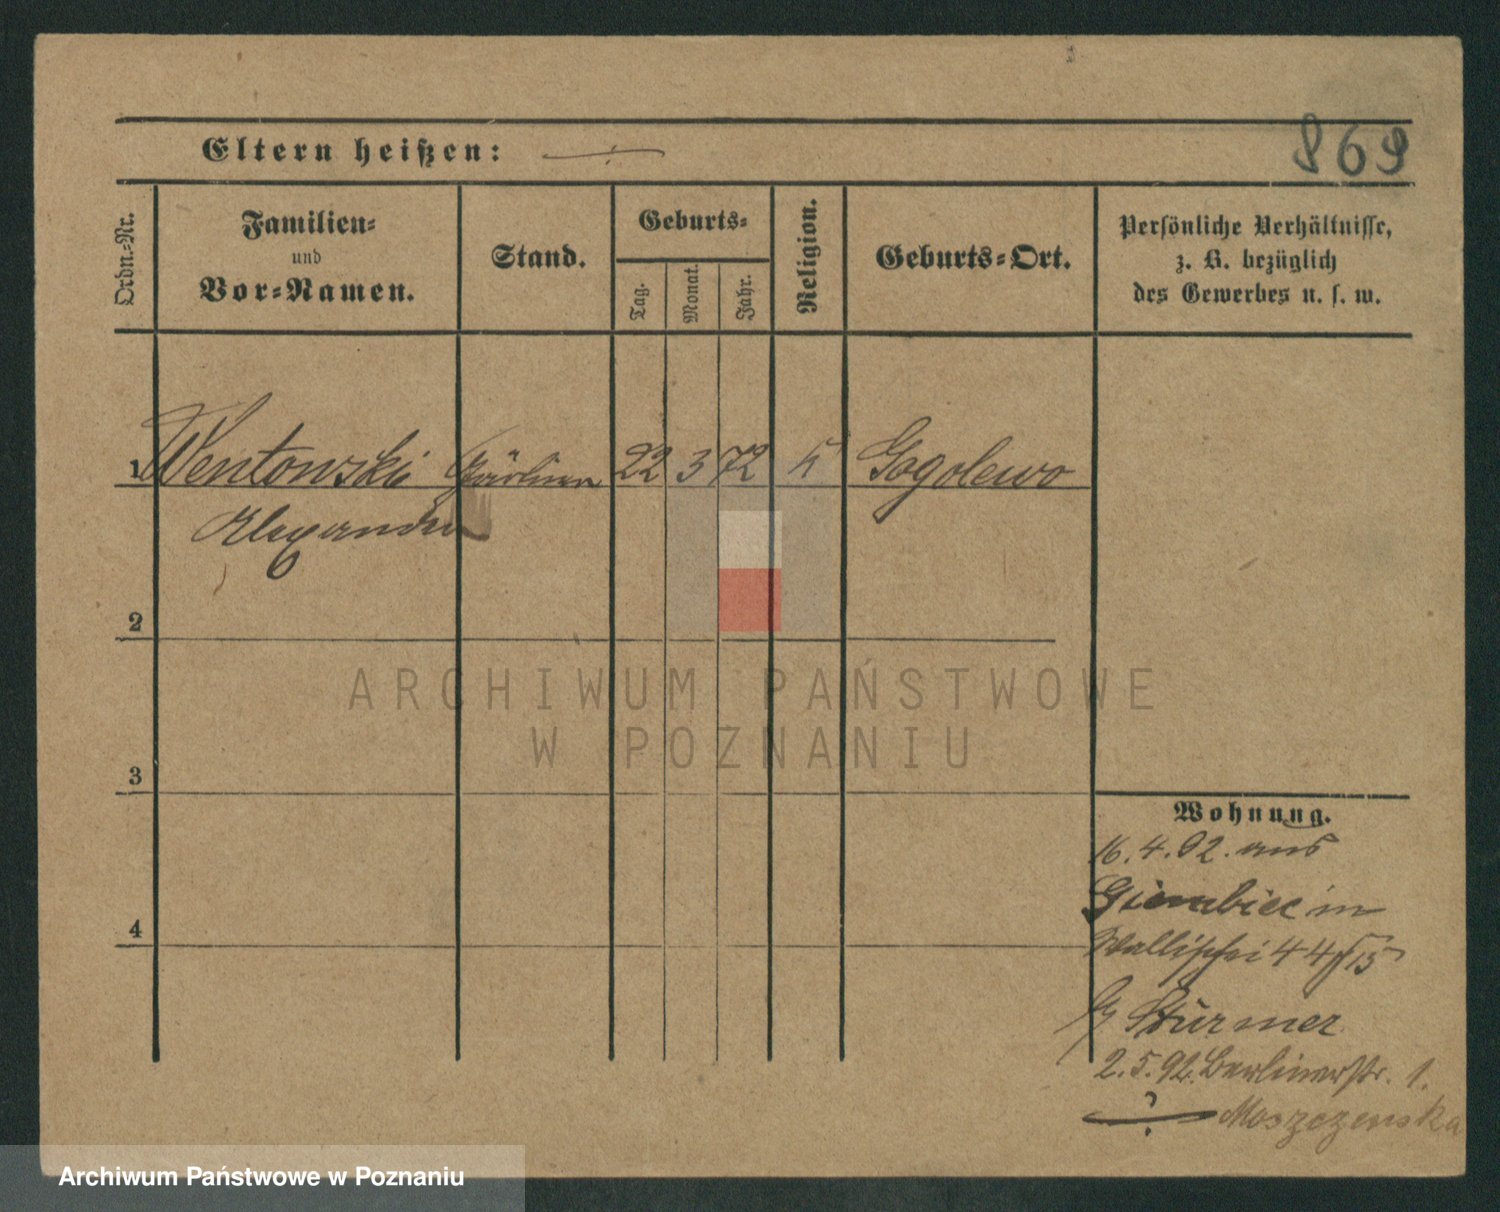 869
Eltern heißen: ÷
Ordn.-Nr.
Familien-
und
Vor-Namen.
Stand.
Geburts-
Tag.
Monat.
Jahr.
Religion.
Geburts-Ort.
Persönliche Verhältnisse,
z. B. bezüglich
des Gewerbes u. s. w.
1 Wentowski Gärtner 22 3 72 k Gogolewo
Alexander
2
ARCHIWUM PAŃSTWOWE
W POZNANIU
3
4
Wohnung.
16. 4. 92. aus
in
Wallischei 44/45
b/ Stürmer
2. 5. 92. Berlinerstr. 1.
÷ Moszczenska
Archiwum Państwowe w Poznaniu